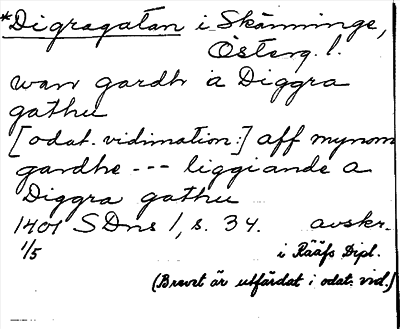 *Digragatan i Skänninge,
Österg. l.
wan gardh a Diggra
gathu
[odat. vidimation:] aff mynom
gardhe --- liggiande a
Diggra gathu
1401 SDns 1, s. 34. avskr.
1/5 i Rääfs Dipl.
(Brevet är utfärdat i odat. vid.)